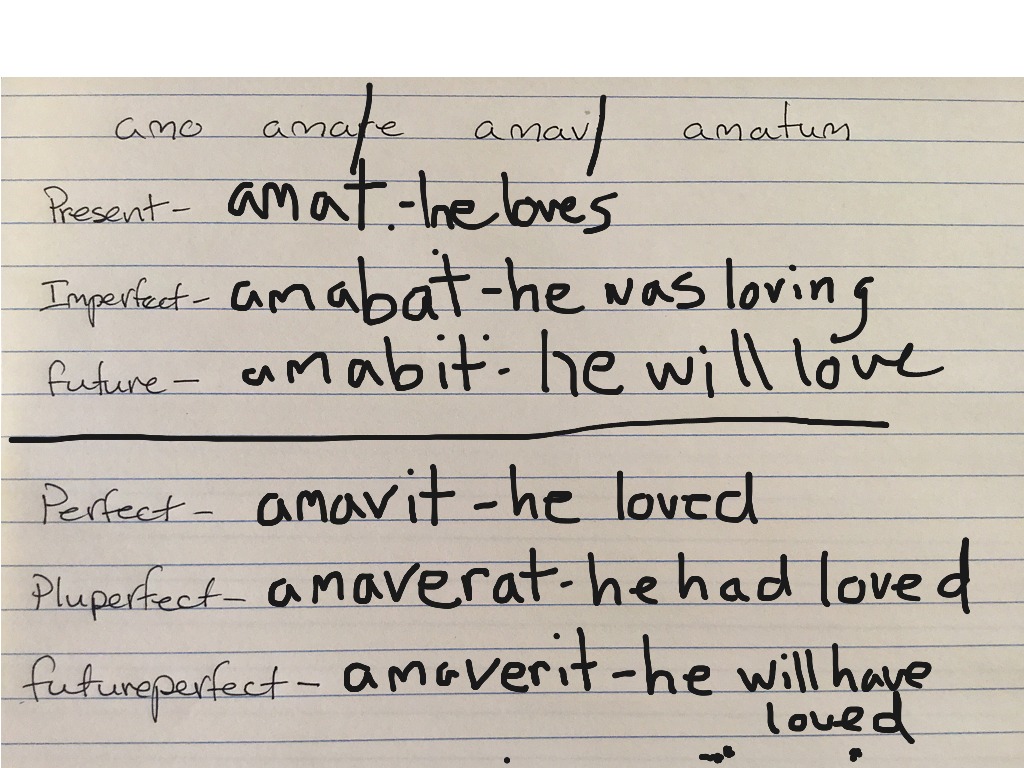 amo amare amavi amatum
Present - amat - he loves
Imperfect - amabat - he was loving
future - amabit - he will love
Perfect - amavit - he loved
Pluperfect - amaverat - he had loved
futureperfect - amaverit - he will have
loved